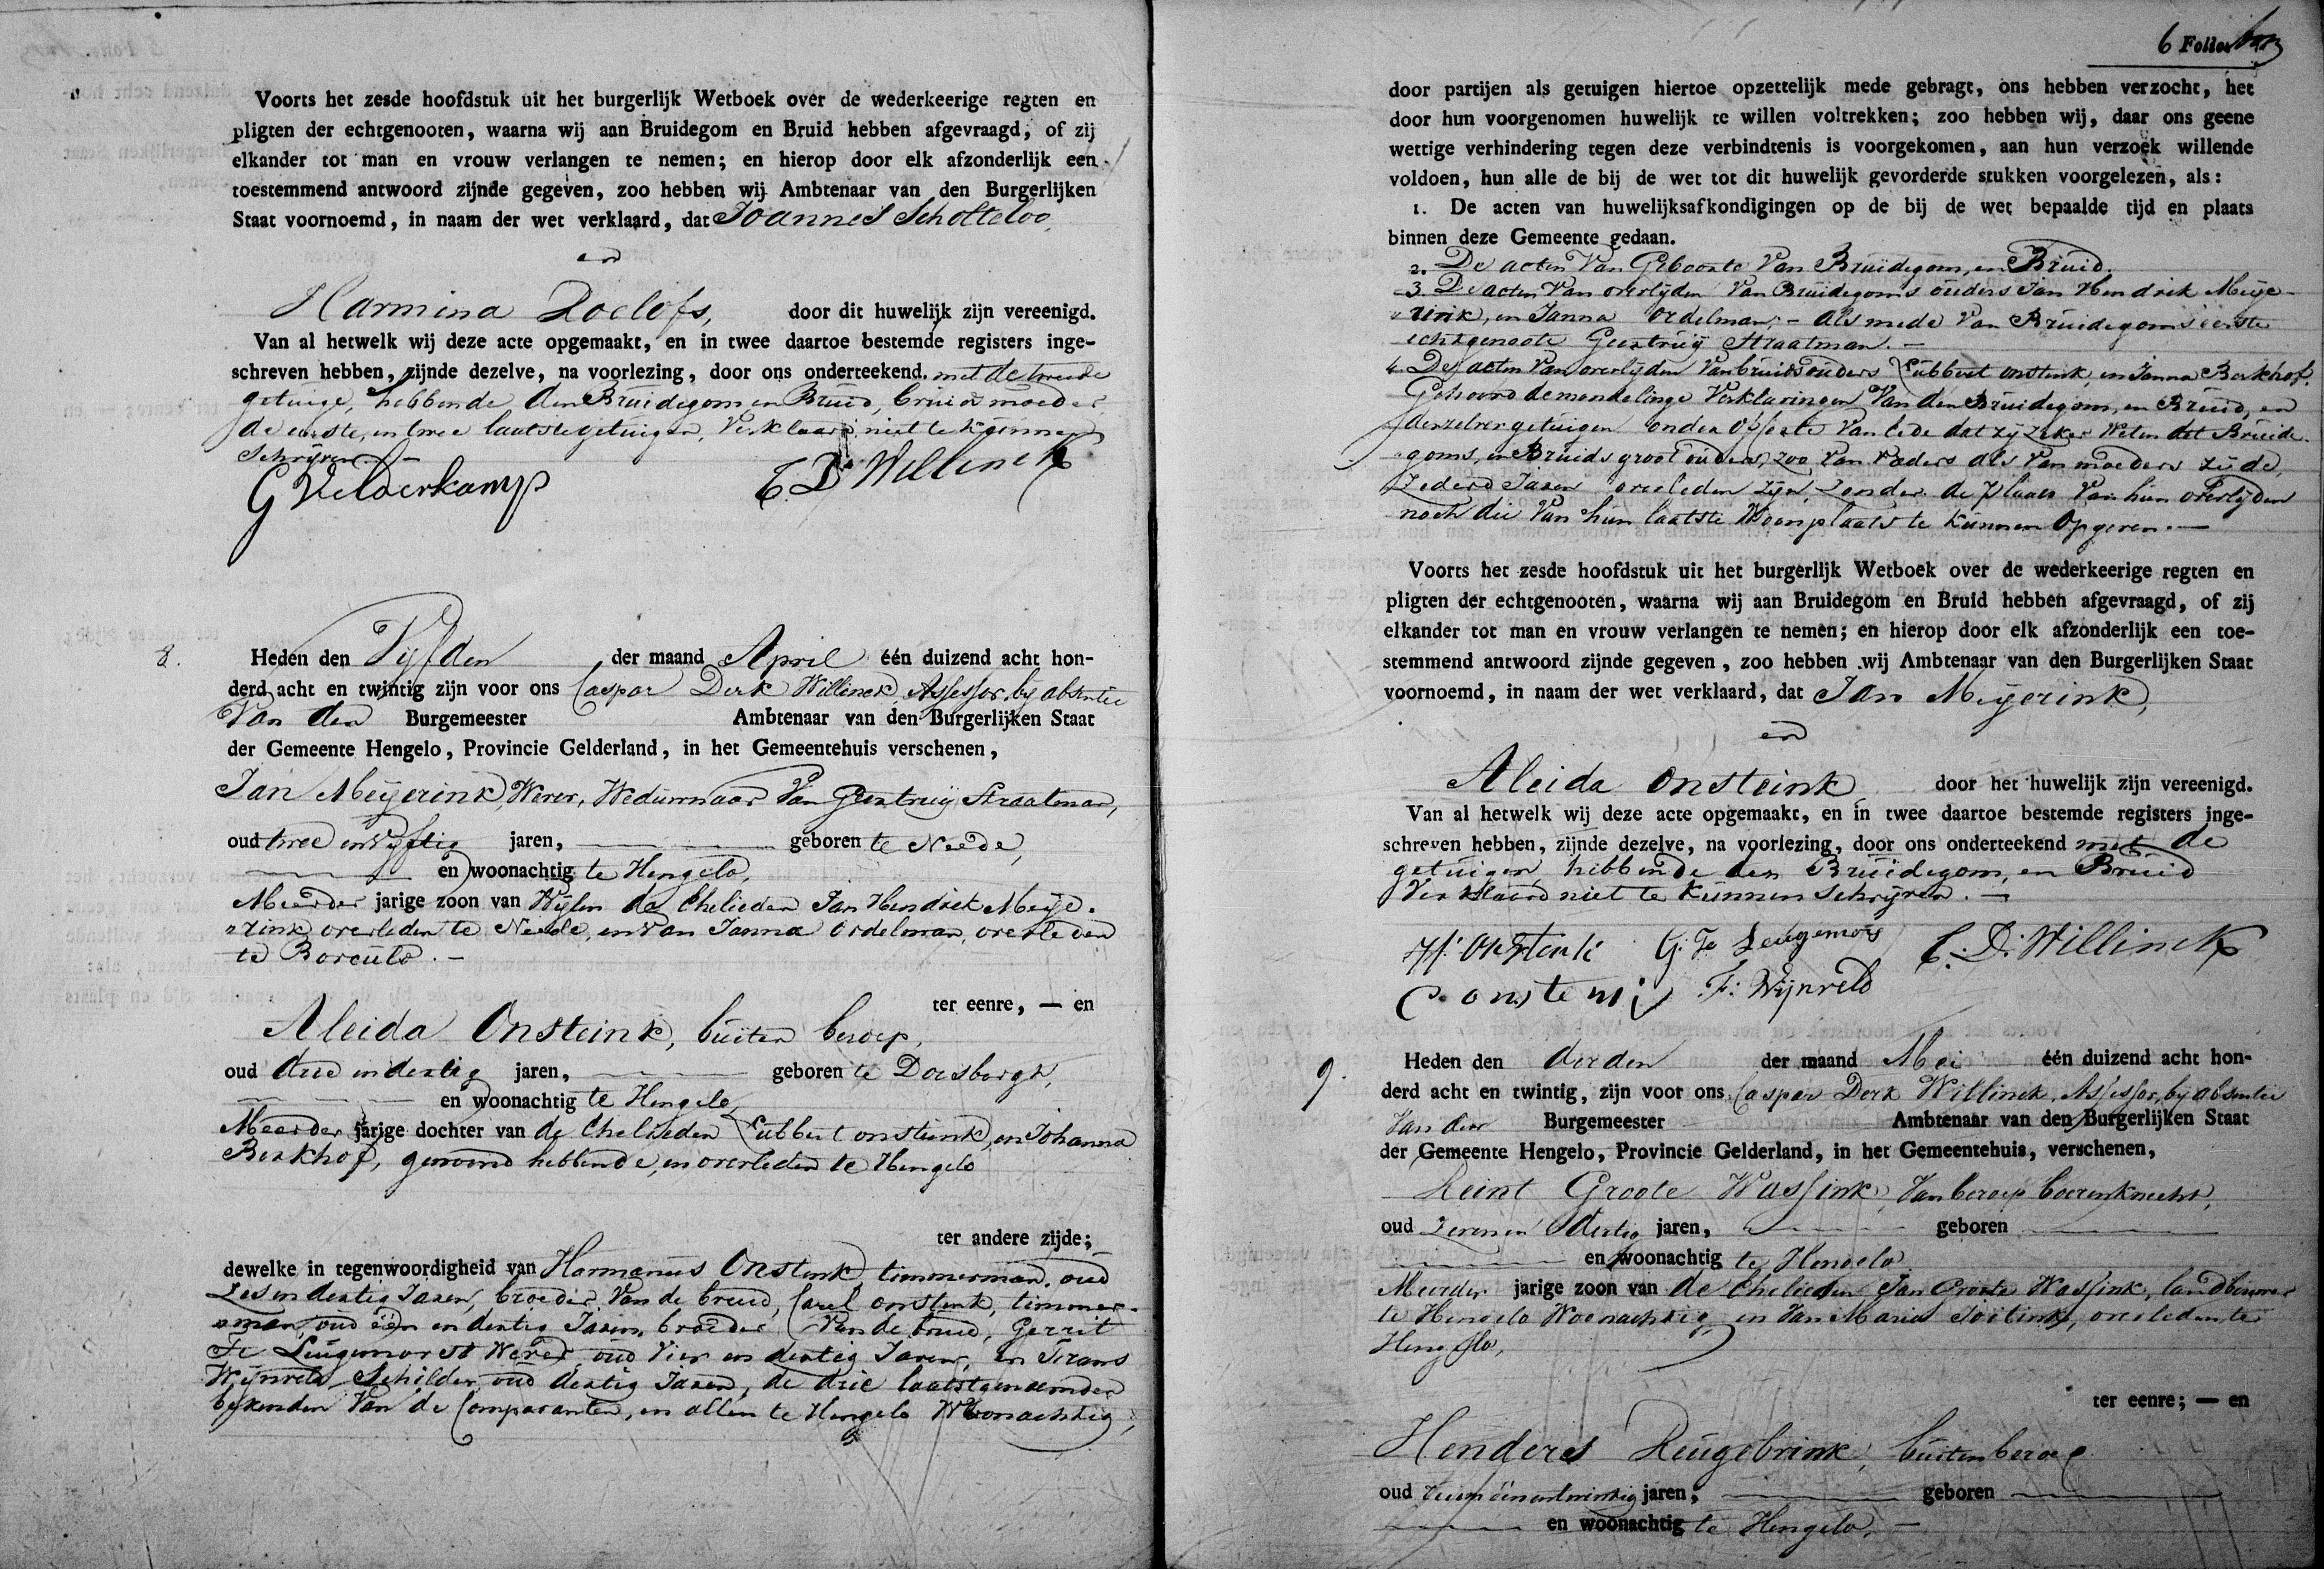 Voorts het zesde hoofdstuk uit het burgerlijk Wetboek over de wederkeerige regten en
pligten der echtgenooten, waarna wij aan Bruidegom en Bruid hebben afgevraagd, of zij
elkander tot man en vrouw verlangen te nemen; en hierop door elk afzonderlijk een
toestemmend antwoord zijnde gegeven, zoo hebben wij Ambtenaar van den Burgerlijken
Staat voornoemd, in naam der wet verklaard, dat Joannes Scholteloo,
en
Harmina Roelofs, door dit huwelijk zijn vereenigd.
Van al hetwelk wij deze acte opgemaakt, en in twee daartoe bestemde registers inge-
schreven hebben, zijnde dezelve, na voorlezing, door ons onderteekend. met de tweede
getuige, hebbende den Bruidegom en Bruid, bruids moeder
de eerste, en twee laatste getuigen, Verklaard niet te kunnen
Schrijven. —
G Velderkamp C. D. Willinck
8. Heden den Vyfden der maand April één duizend acht hon-
derd acht en twintig zijn voor ons Caspar Derk Willinck, Assessor, by absentie
Van den Burgemeester Ambtenaar van den Burgerlijken Staat
der Gemeente Hengelo, Provincie Gelderland, in het Gemeentehuis verschenen,
Jan Meÿerink, Wever, Weduwnaar Van Geertruÿ Straatman,
oud twee en vyftig jaren, geboren te Neede,
en woonachtig te Hengelo,
Meerder jarige zoon van Wylen de Ehelieden Jan Hendrik Meije-
rink overleden te Neede, en van Janna Ordelman, overleden
te Borculo. —
ter eenre, — en
Aleida Onsteink, buiten beroep,
oud drie en dertig jaren, geboren te Doesborgh,
en woonachtig te Hengelo
Meerder jarige dochter van de Ehelieden Lubbert onstenk, en Johanna
Berkhof, gewoond hebbende, en overleden te Hengelo
ter andere zijde;
dewelke in tegenwoordigheid van Harmanus Onstenk timmerman, oud
Zes en dertig Jaren, broeder Van de bruid, Carel onstenk, timmer-
man, oud één en dertig Jaren, broeder Van de bruid, Gerrit
Te Leugemorst Wever, oud Vier en dertig Jaren, en Frans
Wijnveld Schilder, oud dertig Jaren, de drie laatstgenoemden
bekenden Van de Comparanten, en allen te Hengelo Woonachtig,
6 Folio
door partijen als getuigen hiertoe opzettelijk mede gebragt, ons hebben verzocht, het
door hun voorgenomen huwelijk te willen voltrekken; zoo hebben wij, daar ons geene
wettige verhindering tegen deze verbindtenis is voorgekomen, aan hun verzoek willende
voldoen, hun alle de bij de wet tot dit huwelijk gevorderde stukken voorgelezen, als:
1. De acten van huwelijksafkondigingen op de bij de wet bepaalde tijd en plaats
binnen deze Gemeente gedaan.
2. De acten Van Geboorte Van Bruidegom, en Bruid.
3. De acten Van overlijden Van Bruidegoms ouders Jan Hendrik Meije-
rink, en Janna Ordelman; — als mede Van Bruidegoms eerste
echtgenoote Geertruij Straatman. —
4. De acten Van overlyden Van bruids ouders Lubbert onstenk, en Janna Berkhof.
Gehoord de mondelinge Verklaringen Van den Bruidegom, en Bruid, en
derzelver getuigen onder offerte Van Eede dat zy zeker Weten dat Bruide-
goms, en Bruids groot ouders, zoo Van Vaders als Van moeders zijde,
Zederd Jaren overleden zijn, zonder de plaats Van hun overlyden
noch die Van hun laatste Woonplaats te kunnen Opgeven. —
Voorts het zesde hoofdstuk uit het burgerlijk Wetboek over de wederkeerige regten en
pligten der echtgenooten, waarna wij aan Bruidegom en Bruid hebben afgevraagd, of zij
elkander tot man en vrouw verlangen te nemen; en hierop door elk afzonderlijk een toe-
stemmend antwoord zijnde gegeven, zoo hebben wij Ambtenaar van den Burgerlijken Staat
voornoemd, in naam der wet verklaard, dat Jan Meÿerink,
en
Aleida Onsteink door het huwelijk zijn vereenigd.
Van al hetwelk wij deze acte opgemaakt, en in twee daartoe bestemde registers inge-
schreven hebben, zijnde dezelve, na voorlezing, door ons onderteekend met de
getuigen, hebbende den Bruidegom, en Bruid
Verklaard niet te kunnen Schrijven. —
H: Onstenk G: Te Leugemors C. D. Willinck
C. onstenk F: Wijnveld
9. Heden den derden der maand Mei één duizend acht hon-
derd acht en twintig, zijn voor ons Caspar Derk Willinck, Assessor, by absentie
Van den Burgemeester Ambtenaar van den Burgerlijken Staat
der Gemeente Hengelo, Provincie Gelderland, in het Gemeentehuis, verschenen,
Reint Groote Wassink, Van beroep boerenknecht,
oud zeven en dertig jaren, geboren
en woonachtig te Hengelo
Meerder jarige zoon van de Ehelieden Jan Groote Wassink, landbouwer
te Hengelo Woonachtig, en Van Maria, overleden te
Hengelo,
ter eenre; — en
Henders Reugebrink, buiten beroep
oud één en twintig jaren, geboren
en woonachtig te Hengelo, —